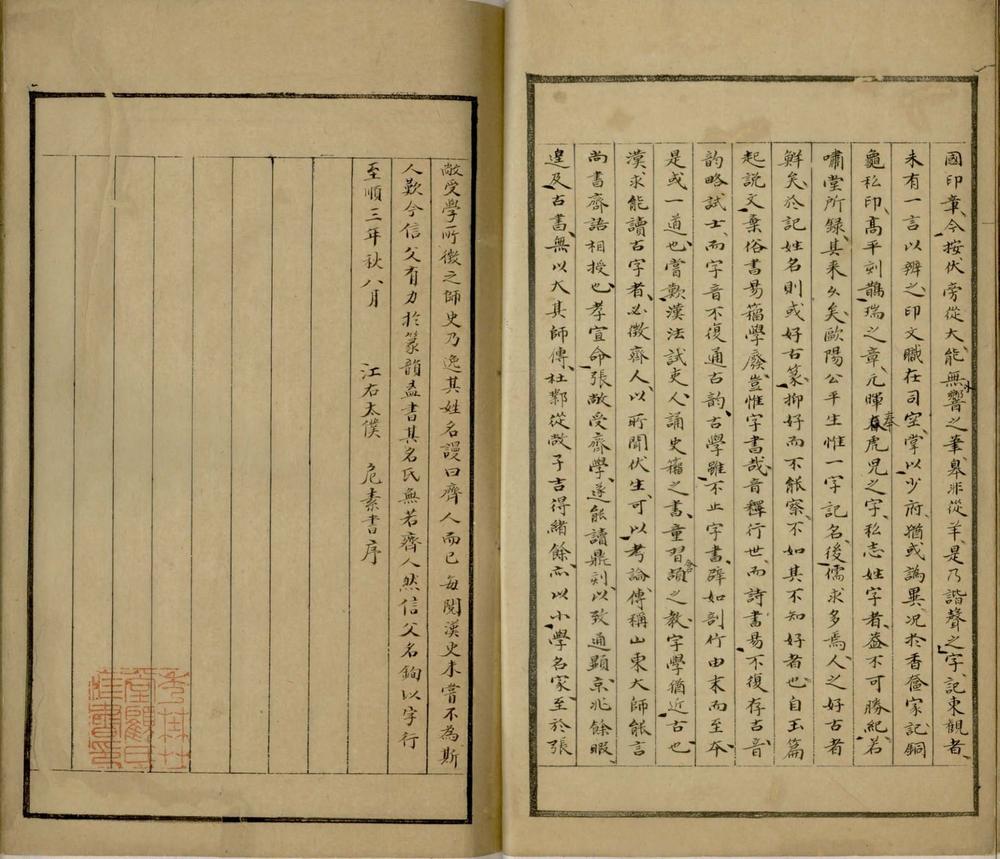 國印章今按伏旁從大能無響之筆皋非從羊是乃諧聲之字記東觀者
未有一言以辨之印文職在司空掌以少府猶或譌異况於香奩家記銅
龜私印高平刻鵲瑞之章元暉奉虎兕之字私志姓字者葢不可勝紀若
嘯堂所録其來久矣歐陽公平生惟一字記名後儒求多焉人之好古者
鮮矣於記姓名則或好古篆抑好而不能察不如其不知好者也自玉篇
起說文棄俗書易籀學廢豈惟字書哉音釋行世而詩書易不復存古音
韵略試士而字音不復通古韵古學雖不止字書辟如剖竹由末而至本
是或一道也嘗歎漢法試吏人誦史籀之書童習頡之教字學猶近古也
漢求能讀古字者必徵齊人以所聞伏生可以考論傳稱山東大師能言
尚書齊語相授也孝宣命張敞受齊學遂能讀鼎刻以致通顯京兆餘暇
遑及古書無以大其師傳杜鄴從敞子吉得緒餘亦以小學名家至於張
敞受學所徵之師史乃逸其姓名謾曰齊人而已每閱漢史未嘗不為斯
人歎今信父有力於篆韻盍書其名氏無若齊人然信父名鉤以字行
至順三年秋八月　江右太僕　危素書序